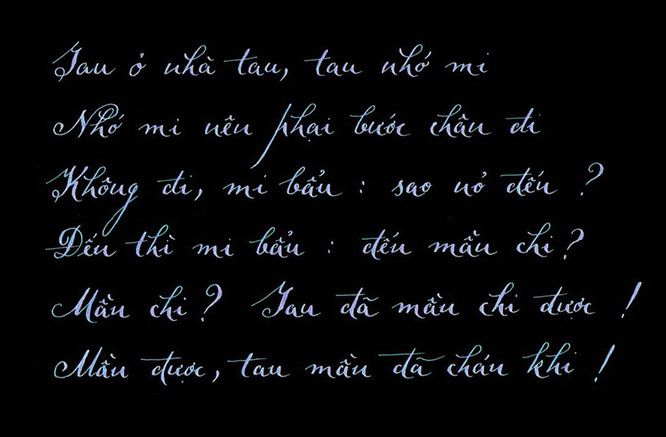 Tau ở nhà tau, tau nhớ mi
Nhớ mi nên phại bước chân đi
Không đi, mi bẩu : sao nỏ đến ?
Đến thì mi bẩu : đến mần chi ?
Mần chi ? Tau đã mần chi được !
Mần được, tau mần đã chán khi !